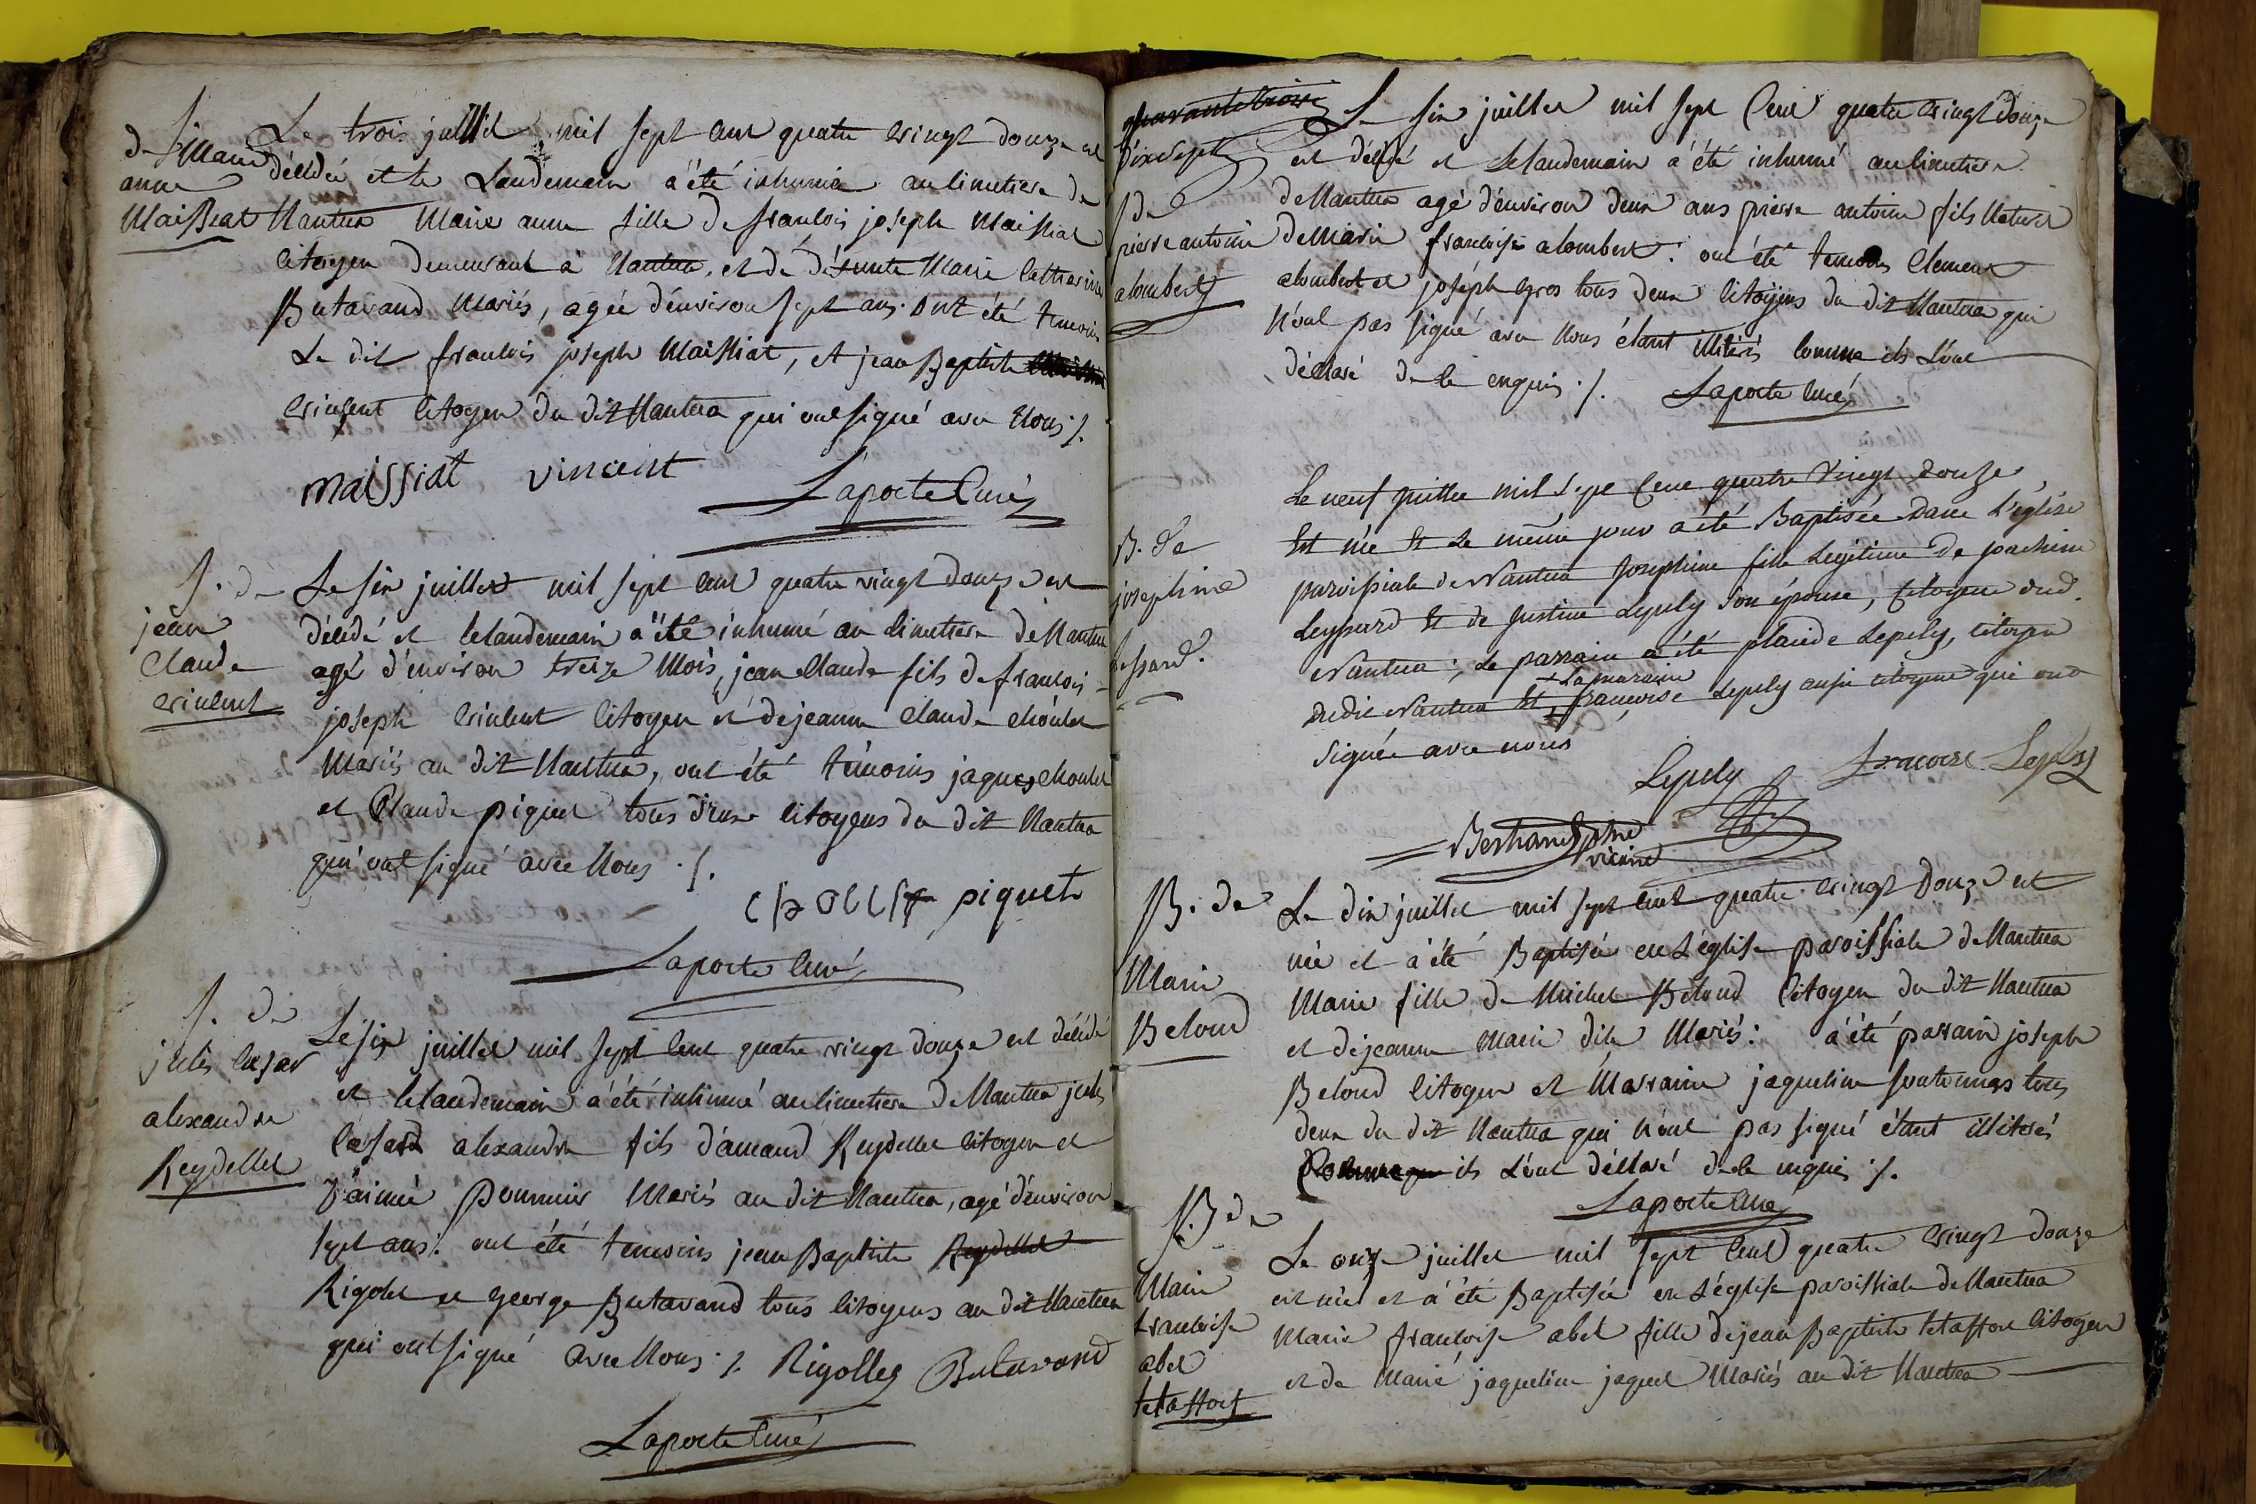 S.
de Marie
anne
Maissiat
Le trois juillet mil sept cent quatre vingt douze est
décédée et le Landemain a été inhumée au cimetiere de
Nantua Marie anne fille de francois joseph Maissiat
citoyen demeurant à Nantua, et de défunte Marie Catherine
Butavand Mariés, agée d'environ sept ans. ont été temoins
Le dit francois joseph Maissiat, et jean Baptiste
vincent citoyen du dit Nantua qui ont signé avec Nous ./.
maissiat vincent
Laporte Curé
S. de
jean
Claude
vincent
Le six juillet mil sept cent quatre vingt douze est
décédé et le landemain a été inhumé au cimetiere de Nantua
agé d'environ treize Mois, jean Claude fils de francois
joseph vincent citoyen et de jeanne Claude choulet
Mariés au dit Nantua, ont été témoins jaques choulet
et Claude piquet tous deux citoyens du dit Nantua
qui ont signé avec Nous ./.
piquet
Laporte Curé
S. de
jules cesar
alexandre
Reydellet
Le six juillet mil sept cent quatre vingt douze est décédé
et le landemain a été inhumé au cimetiere de Nantua jules
cesard alexandre fils d'amand Reydellet citoyen et
d'aimée Mariés au dit Nantua, agé d'environ
sept ans: ont été temoins jean Baptiste Reydellet
Rigolet et george Butavand tous citoyens au dit Nantua
qui ont signé avec Nous ./. Rigolley Butavand
Laporte Curé
quarante trois
dixsept
S de
pierre antoine
alombert
Le six juillet mil sept Cent quatre vingt douze
est décédé et le landemain a été inhumé au cimetiere
de Nantua agé d'environ deux ans pierre antoine fils Naturel
de Marie francoise alombert: ont été temoins Clement
alombert et joseph gros tous deux citoyens du dit Nantua qui
N'ont pas signé avec Nous étant illiterés comme ils L'ont
déclaré de ce enquis ./. Laporte Curé
B. de
josephine
Le neuf juillet mil sept Cent quatre vingt douze
Est née Et Le même jour a été Baptisée Dans L'église
paroissiale de Nantua Josephine fille Legitime de joachim
Et de Justine Lepely son épouse, Citoyens dud.
Nantua; Le parrain a été placide Lepely, citoyen
+ La marraine
dudit Nantua Et + francoise Lepely aussi citoyenne qui ont
Signée avec nous
Lepely francoise Lepely
Bertrand ptre
vicaire
B. de
Marie
Beloud
Le dix juillet mil sept cent quatre vingt douze est
née et a été Baptisée en L'église paroissiale de Nantua
Marie fille de Michel Beloud Citoyen du dit Nantua
et de jeanne Marie dite Mariés: a été parrain joseph
Beloud citoyen et Marraine jaqueline tous
deux du dit Nantua qui N'ont pas signé étant illiterés
Comme ils L'ont déclaré de ce enquis ./.
Laporte Curé
B de
Marie
francoise
abel
tetaffort
Le onze juillet mil sept cent quatre vingt douze
est née et a été Baptisée en L'église paroissiale de Nantua
Marie francoise abel fille de jean Baptiste tetaffort citoyen
et de Marie jaqueline jaquet Mariés au dit Nantua